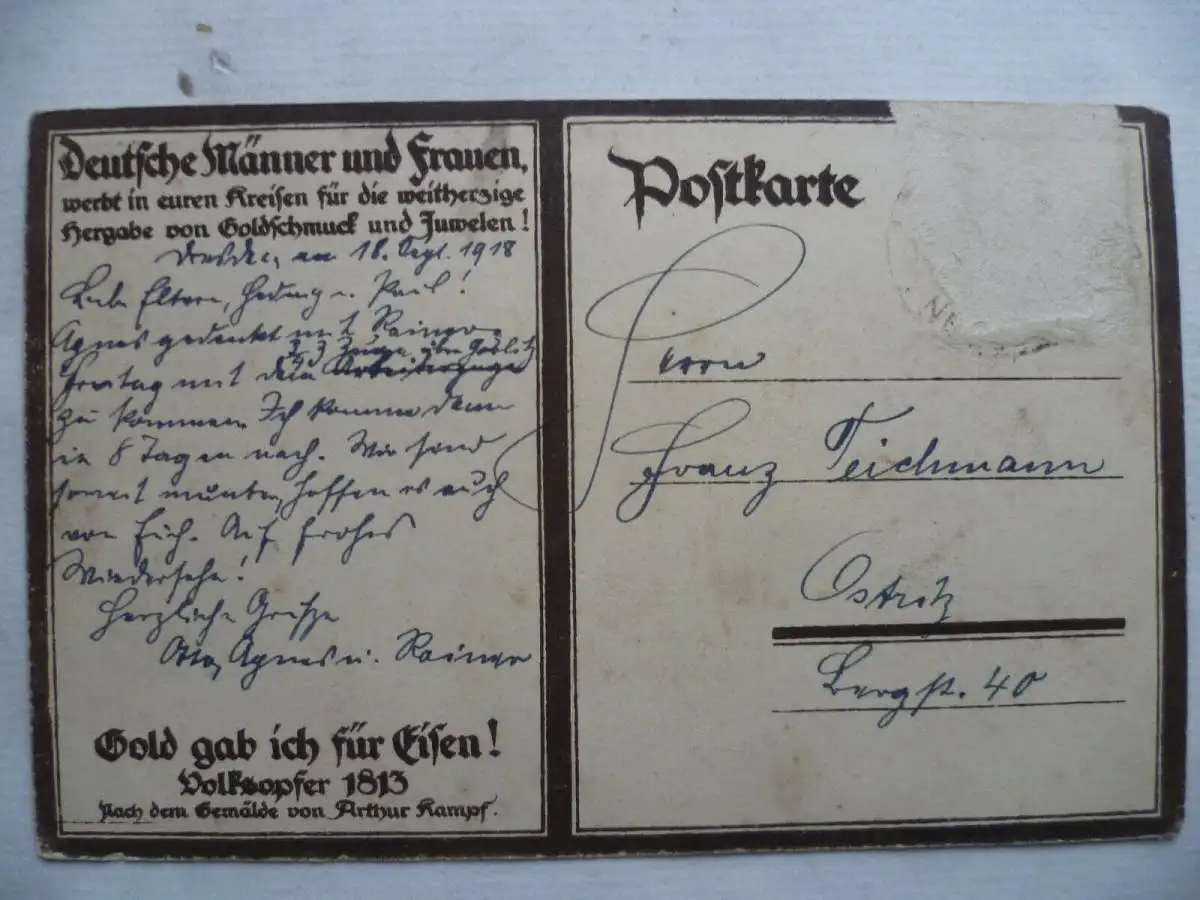 Deutsche Männer und Frauen,
werbt in euren Kreisen für die weitherzige
Hergabe von Goldschmuck und Juwelen!
Dresden, am 18. Sept. 1918
Liebe Eltern, Hedwig u. Paul!
Agnes gedenkt mit Rainer
z. 3 Zuge über Görlitz
Freitag mit dem Arbeiterzuge
zu kommen. Ich komme dann
in 8 Tagen nach. Wir sind
soweit munter, hoffen es auch
von Euch. Auf frohes
Wiedersehn!
Herzliche Grüße
Otto, Agnes u. Rainer
Gold gab ich für Eisen!
Volksopfer 1813
Nach dem Gemälde von Arthur Kampf.
Postkarte
Herrn
Franz Teichmann
Ostritz
Bergstr. 40